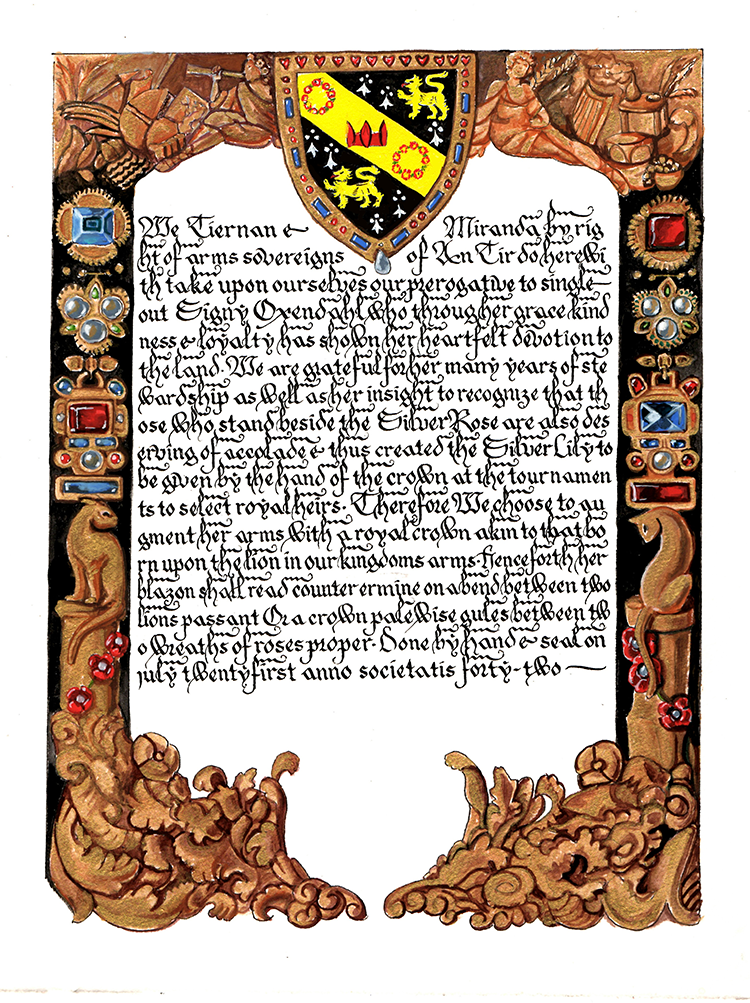 We Tiernan & Miranda by rig
ht of arms sovereigns of An Tir do herewi
th take upon ourselves our prerogative to single
out Signy Oxendahl who through her grace kind
ness & loyalty has shown her heartfelt devotion to
the land. We are grateful for her many years of ste
wardship as well as her insight to recognize that th
ose who stand beside the Silver Rose are also des
erving of accolade & thus created the Silver Lily to
be given by the hand of the crown at the tournamen
ts to select royal heirs. Therefore We choose to au
gment her arms with a royal crown akin to that bo
rn upon the lion in our kingdoms arms. henceforth her
blazon shall read counter ermine on a bend between two
lions passant Or a crown palewise gules between tw
o wreaths of roses proper. Done by hand & seal on
july twentyfirst anno societatis forty-two